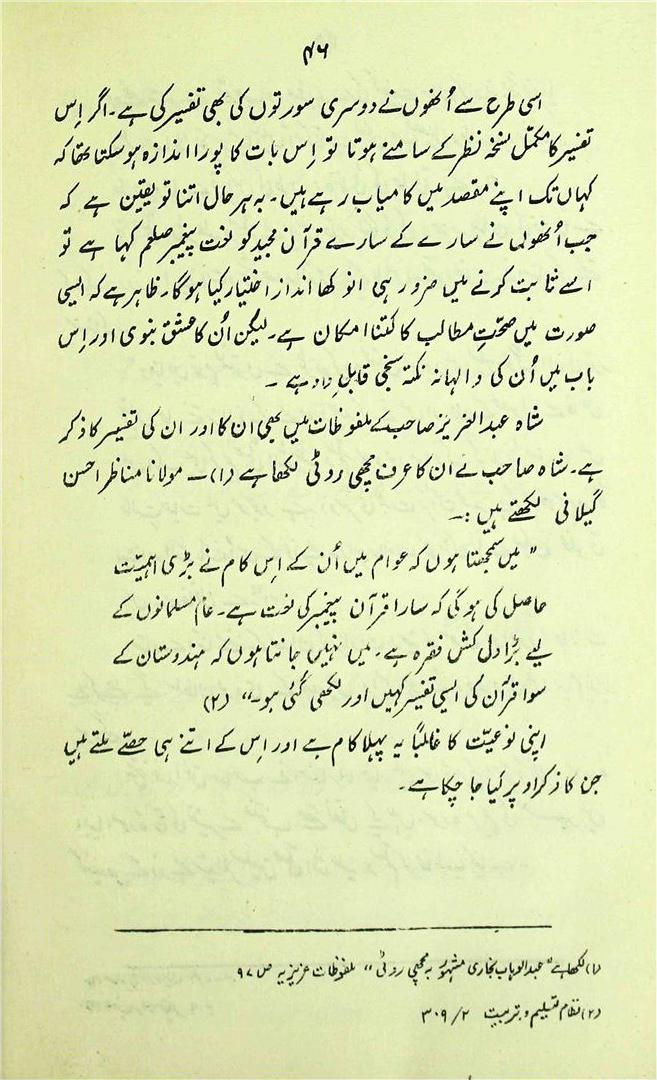 ۴۶
اسی طرح سے اُنھوں نے دوسری سورتوں کی بھی تفسیر کی ہے۔ اگر اِس
تفسیر کا مکمل نسخہ نظر کے سامنے ہوتا تو اِس بات کا پورا اندازہ ہوسکتا تھا کہ
کہاں تک اپنے مقصد میں کامیاب رہے ہیں۔ بہ ہرحال اتنا تو یقین ہے کہ
جب اُنھوں نے سارے کے سارے قرآن مجید کو نعت پیغمبر صلعم کہا ہے تو
اسے ثابت کرنے میں ضرور ہی انوکھا انداز اختیار کیا ہوگا۔ ظاہر ہے کہ ایسی
صورت میں صحّتِ مطالب کا کتنا امکان ہے۔ لیکن اُن کا عشق نبوی اور اِس
باب میں اُن کی والہانہ نکتہ سنجی قابلِ داد ہے ۔
شاہ عبدالعزیز صاحب کے ملفوظات میں بھی ان کا اور ان کی تفسیر کا ذکر
ہے۔ شاہ صاحب نے ان کا عرف مچھی روٹی لکھا ہے (۱) ۔ مولانا مناظر احسن
گیلانی لکھتے ہیں :۔
" میں سمجھتا ہوں کہ عوام میں اُن کے اِس کام نے بڑی اہمیّت
حاصل کی ہوگی کہ سارا قرآن پیغمبر کی نعت ہے۔ عام مسلمانوں کے
لیے بڑا دل کش فقرہ ہے۔ میں نہیں جانتا ہوں کہ ہندوستان کے
سوا قرآن کی ایسی تفسیر کہیں اور لکھی گئی ہو۔" (۲)
اپنی نوعیّت کا غالباً یہ پہلا کام ہے اور اس کے اتنے ہی حصّے ملتے ہیں
جن کا ذکر اوپر کیا جا چکا ہے ۔
(۱) لکھا ہے "عبدالوہاب بخاری مشہور بہ مچھی روٹی" ملفوظات عزیزیہ ص ۹۷
(۲) نظام تعلیم و تربیت ۲/ ۳۰۹